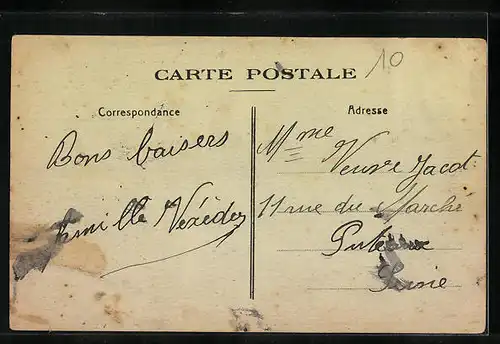 CARTE POSTALE
10
Correspondance
Bons baisers
famille
Adresse
Mme
Veuve Jacot
11 rue du Marché
Puteaux
Seine